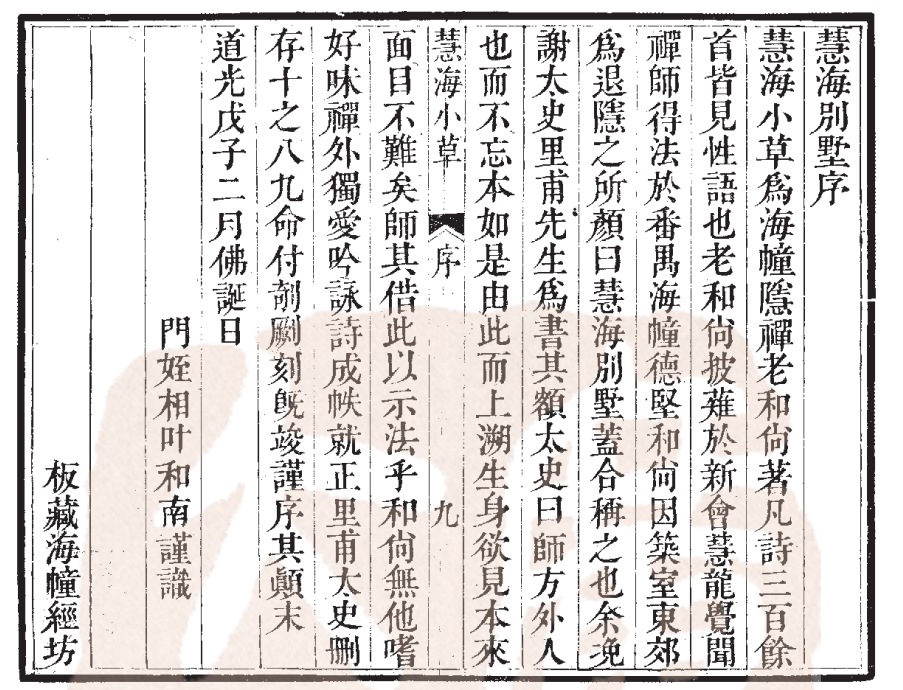 慧海別墅序
慧海小草爲海幢隱禪老和尙著凡詩三百餘
首皆見性語也老和尙披薙於新會慧龍覺聞
禪師得法於番禺海幢德堅和尙因築室東郊
爲退隱之所顏曰慧海別墅蓋合稱之也余浼
謝太史里甫先生爲書其額太史曰師方外人
也而不忘本如是由此而上溯生身欲見本來
慧海小草 序 九
面目不難矣師其借此以示法乎和尙無他嗜
好味禪外獨愛吟詠詩成帙就正里甫太史刪
存十之八九命付剞劂刻旣竣謹序其顛末
道光戊子二月佛誕日
門姪相叶和南謹識
板藏海幢經坊